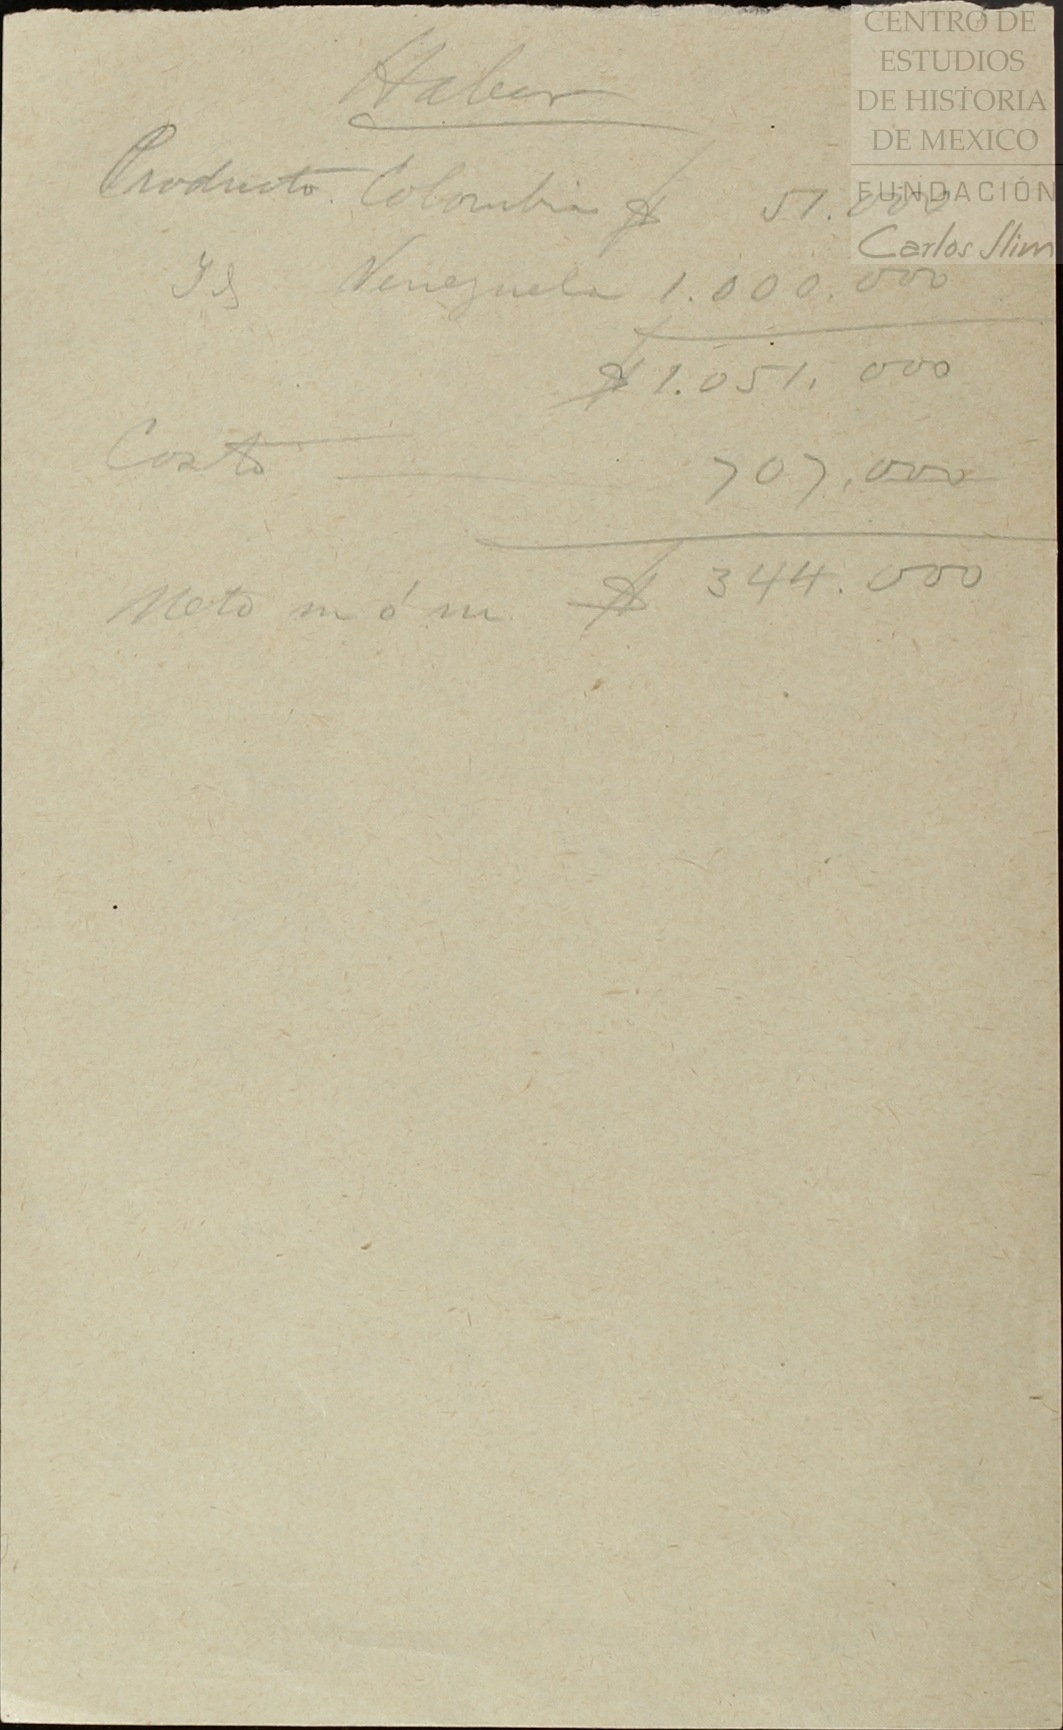 CENTRO DE
ESTUDIOS
DE HISTORIA
DE MEXICO
FUNDACIÓN
Carlos Slim
Haber
Producto Colombia $ 51.000
Id Venezuela 1.000.000
$ 1.051.000
Costo 707.000
Neto m ó m $ 344.000